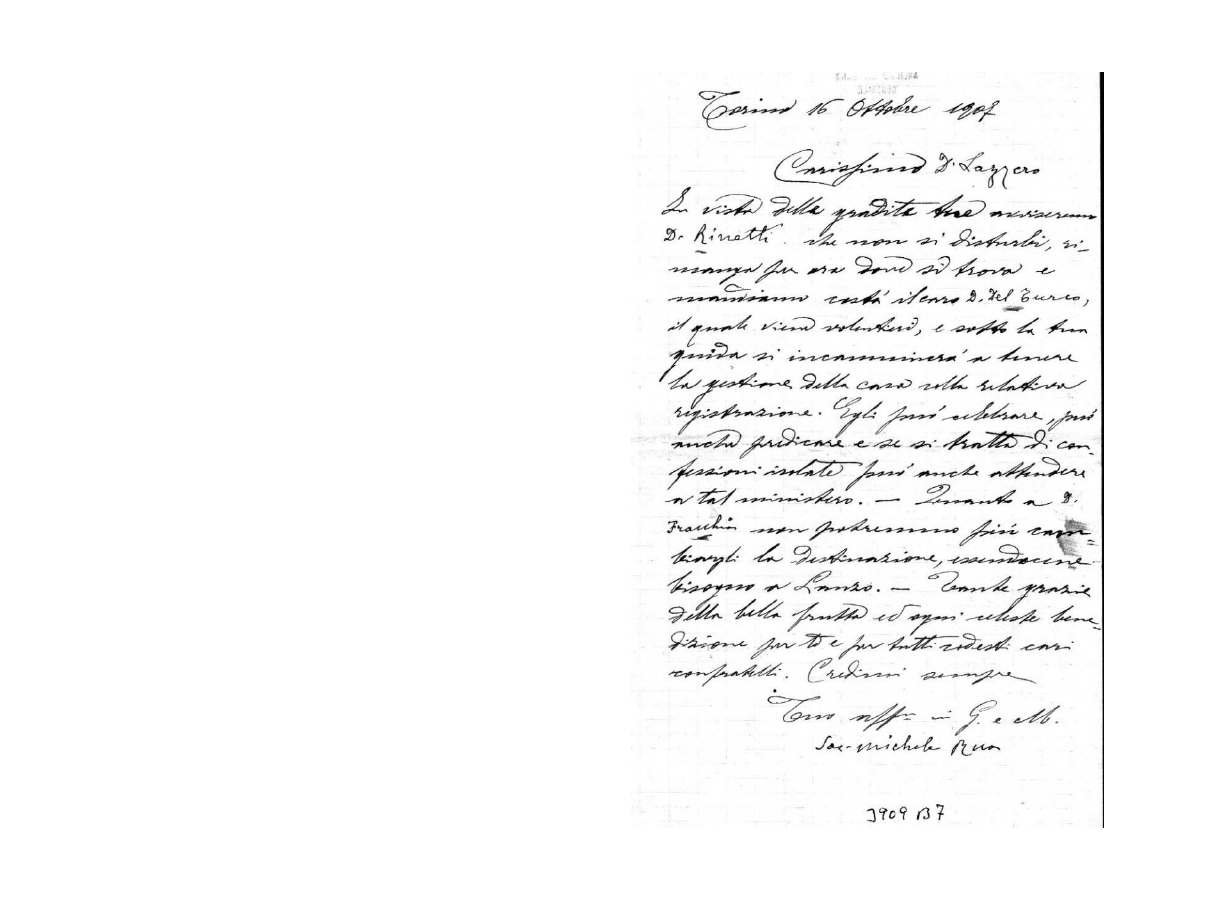 Torino 16 Ottobre 1907
Carissimo D. Lazzero
In vista della gradita tua avviseremo
D. Rinetti che non si disturbi, ri-
manga per ora dove si trova e
mandiamo costà il caro D. Del Turco,
il quale viene volentieri, e sotto la tua
guida si incamminerà a tenere
la gestione della casa colla relativa
registrazione. Egli può celebrare, può
anche predicare e se si tratta di con-
fessioni isolate può anche attendere
a tal ministero. — Quanto a D.
Fracchia non potremmo più cam-
biargli la destinazione, essendocene
bisogno a Lanzo. — Tante grazie
della bella frutta ed ogni celeste bene-
dizione per te e per tutti codesti cari
confratelli. Credimi sempre
Tuo aff.mo in G. e M.
Sac. Michele Rua
3909 B7